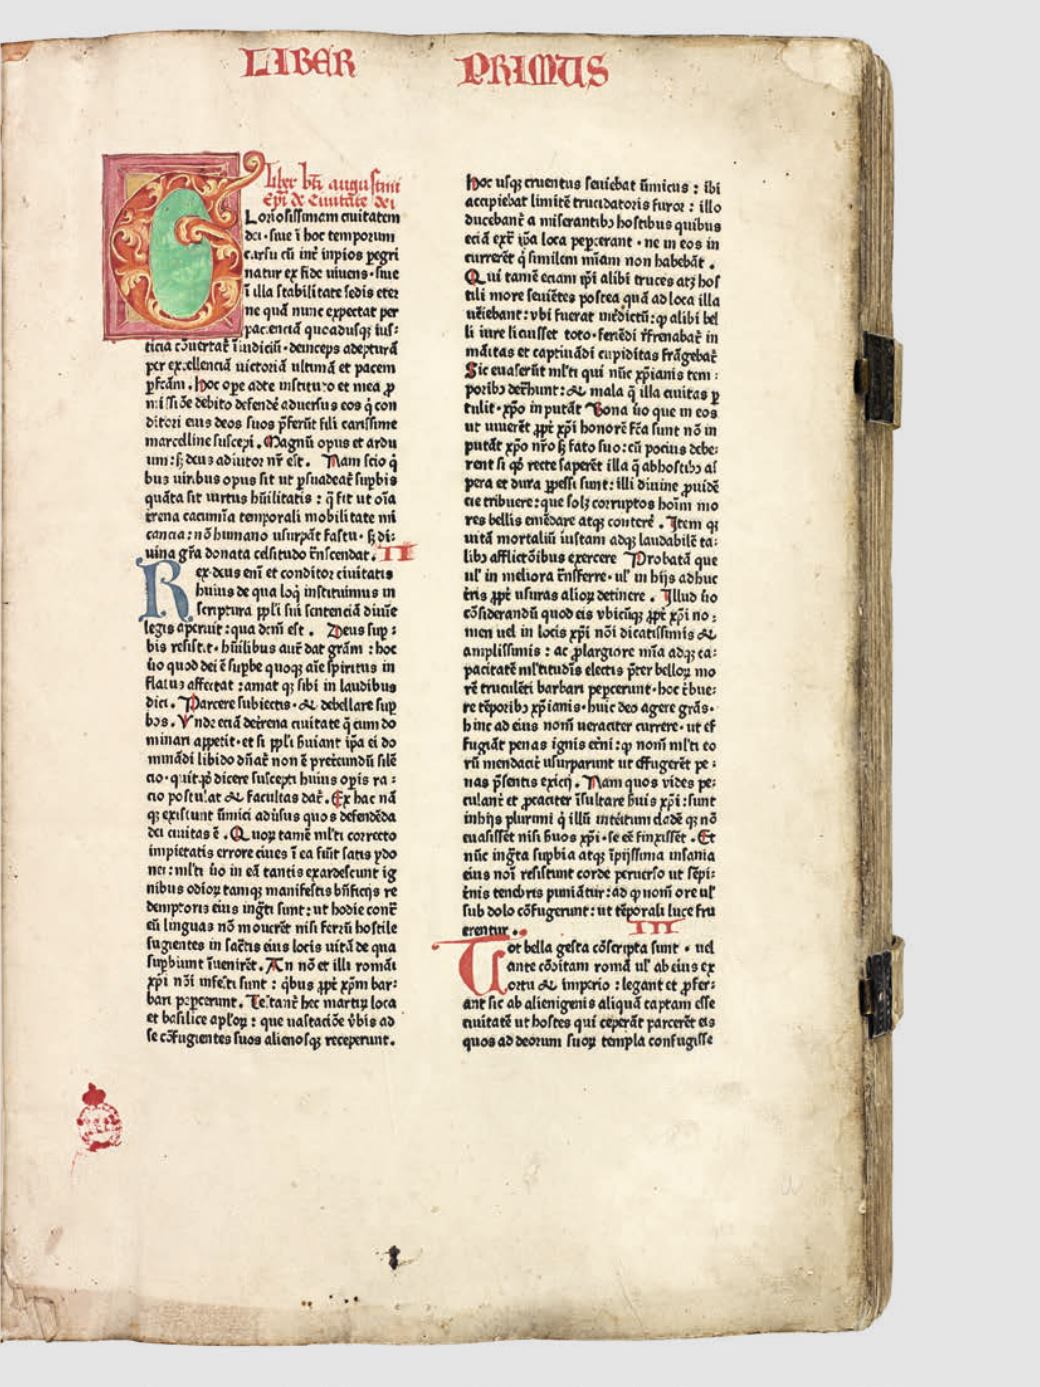 LIBER PRIMUS
Liber bti augustini
epi de Ciuitate dei
Loriosissimam ciuitatem
dei · siue ī hoc temporum
cursu cū int̄ inpios pegri
natur ex fide uiuens · siue
ī illa stabilitate sedis eter
ne quā nunc expectat per
pacienciā quoadusq̨ ius:
ticia cōuertat̄ ī iudiciū · deinceps adepturā
per excellenciā uictoriā ultimā et pacem
pfcām . hoc ope adte instituto et mea ꝓ
missiōe debito defendē aduersus eos q̇ con
ditori eius deos suos p̄ferūt fili carissime
marcelline suscepi . Magnū opus et ardu
um : s̨ deus adiutor nr̄ est . Nam scio q̇
bus uiribus opus sit ut p̱suadeat̄ sup̱bis
quāta sit uirtus hūilitatis : q̄ fit ut oīa
trena cacumīa temporali mobilitate nu
cancia : nō humano usurpāt fastu · s̨ di:
uina gr̄a donata celsitudo tr̄nscendat . II
Rex · deus enī et conditor ciuitatis
huius de qua loq̇ instituimus in
scriptura ppl̄i sui sentenciā diuīe
legis aperuit : qua dcm̄ est . Deus sup̱ :
bis resistit · hūilibus aut̄ dat grām : hoc
ūo quod dei ē sup̱be quoq̨ aīe spiritus in
flatus affectat : amat q̨ sibi in laudibus
dici . Parcere subiectis · & debellare sup̱
bos . Vnde eciā de trena ciuitate q̄ cum do
minari appetit · et si ppl̄i s̄uiant ip̄a ei do
minādi libido dn̄at̄ non ē pret̄eundū silē
cio · quitq̇d dicere suscepti huius op̱is ra :
cio postulat & facultas dat̄ . Ex hac nā
q̨ existunt īimici adūsus quos defendēda
dei ciuitas ē . Quoꝝ tamē ml̄ti correcto
impietatis errore ciues ī ea fiūt satis ydo
nei : ml̄ti ūo in eā tantis exardescunt ig
nibus odioꝝ tamq̨ manifestis bn̄ficijs re
demptoris eius ingr̄ti sunt : ut hodie contr̄
eū linguas nō mouerēt nisi ferrū hostile
fugientes in sacr̄tis eius locis uitā de qua
sup̱biunt īuenirēt . An nō et illi romāi
xp̄i nōi infesti sunt : q̇bus ꝓpt̄ xp̄m bar:
bari pepcerunt . Testant̄ hec martiꝝ loca
et basilice ap̄loꝝ : que uastaciōe v̄bis ad
se cōfugientes suos alienosq̨ receperunt .
hoc usq̨ cruentus seuiebat īimicus : ibi
accipiebat limitē trucidatoris furor : illo
ducebant̄ a miserantib̨ hostibus quibus
eciā extr̄ ip̄a loca pepcerant · ne in eos in
currerēt q̇ similem mīam non habebāt .
Qui tamē eciam ip̄i alibi truces atq̨ hos
tili more seuiētes postea quā ad loca illa
uēiebant : vbi fuerat int̄dictū : q̨ alibi bel
li iure licuisset toto · feriēdi r̄frenabat̄ in
māitas et captiuādi cupiditas frāgebat̄
Sic euaserūt ml̄ti qui nūc xp̄ianis tem :
porib̨ detr̄hunt : & mala q̄ illa ciuitas p̱
tulit · xp̄o inputāt Bona ūo que in eos
ut uiuerēt ꝓpt̄ xp̄i honorē fc̄a sunt nō in
putāt xp̄o nr̄o s̨ fato suo : cū pocius debe:
rent si q̇d recte saperēt illa q̄ abhostib̨ as
pera et dura ꝓpessi sunt : illi diuine ꝓuidē
cie tribuere : que sol̨ corruptos hoīm mo
res bellis emēdare atq̨ conterē . Item q̨
uitā mortaliū iustam adq̨ laudabilē ta:
lib̨ afflictōibus exercere Probatā que
ul̄ in meliora tr̄nsferre · ul̄ in hijs adhuc
tr̄is ꝓpt̄ usuras alioꝝ detinere . Illud ūo
cōsiderandū quod eis vbicūq̨ ꝓpt̄ xp̄i no :
men uel in locis xp̄i nōi dicatissimis &
amplissimis : ac ꝓ largiore mīa adq̨ ca:
pacitatē ml̄titudīs electis p̄ter belloꝝ mo
rē truculēti barbari pepcerunt · hoc tr̄bue:
re tēporib̨ xp̄ianis · huic deo agere grās ·
hinc ad eius nom̄ ueraciter currere · ut ef
fugiāt penas ignis et̄ni : q̨ nom̄ ml̄ti eo
rū mendacit̄ usurparunt ut effugerēt pe :
nas p̄sentis exicij . Nam quos vides pe:
culant̄ et ꝓcaciter īsultare s̄uis xp̄i : sunt
inhijs plurimi q̇ illū int̄eritum cladē q̨ nō
euasissēt nisi s̄uos xp̄i · se eē finxissēt . Et
nūc ingr̄ta sup̱bia atq̨ īpijssima insania
eius noī resistunt corde peruerso ut sēpi:
t̄nis tenebris puniātur : ad q̨ nom̄ ore ul̄
sub dolo cōfugerunt : ut tēporali luce fru
erentur .. III
Tot bella gesta cōscripta sunt · uel
ante cōditam romā ul̄ ab eius ex
ortu & imperio : legant et ꝓfer:
ant sic ab alienigenis aliquā captam esse
ciuitatē ut hostes qui ceperāt parcerēt eis
quos ad deorum suoꝝ templa confugisse